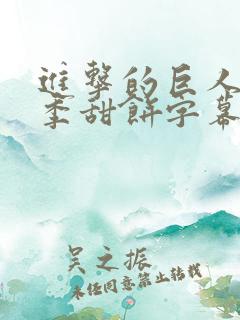 進擊的巨人
季甜餅字幕
吳之振
未經同意禁止轉載